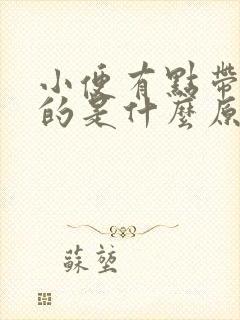 小便有點帶
的是什麼原
蘇堃